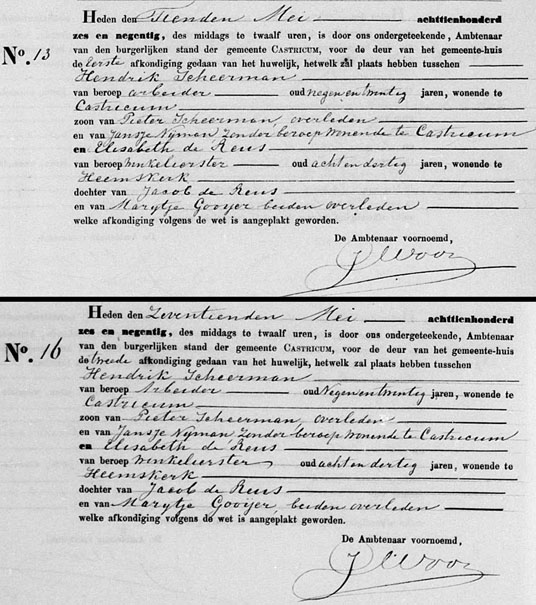 Heden den Tienden Mei achttienhonderd
zes en negentig, des middags te twaalf uren, is door ons ondergeteekende, Ambtenaar
van den burgerlijken stand der gemeente CASTRICUM, voor de deur van het gemeente-huis
No. 13 de eerste afkondiging gedaan van het huwelijk, hetwelk zal plaats hebben tusschen
Hendrik Scheerman
van beroep arbeider oud negen en twintig jaren, wonende te
Castricum
zoon van Pieter Scheerman, overleden
en van Jansje Nijman zonder beroep wonende te Castricum
en Elisabeth de Reus
van beroep winkelierster oud acht en dertig jaren, wonende te
Heemskerk
dochter van Jacob de Reus
en van Marijtje Gooijer beiden overleden
welke afkondiging volgens de wet is aangeplakt geworden.
De Ambtenaar voornoemd,
Heden den Zeventienden Mei achttienhonderd
zes en negentig, des middags te twaalf uren, is door ons ondergeteekende, Ambtenaar
van den burgerlijken stand der gemeente CASTRICUM, voor de deur van het gemeente-huis
No. 16 de tweede afkondiging gedaan van het huwelijk, hetwelk zal plaats hebben tusschen
Hendrik Scheerman
van beroep Arbeider oud Negen en twintig jaren, wonende te
Castricum
zoon van Pieter Scheerman, overleden
en van Jansje Nijman zonder beroep wonende te Castricum
en Elisabeth de Reus
van beroep Winkelierster oud acht en dertig jaren, wonende te
Heemskerk
dochter van Jacob de Reus
en van Marijtje Gooijer, beiden overleden
welke afkondiging volgens de wet is aangeplakt geworden.
De Ambtenaar voornoemd,